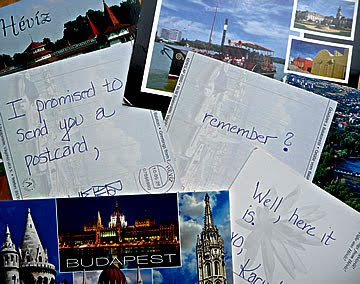 Hévíz
I promised to
send you a
postcard,
remember?
Well, here it
is.
BUDAPEST